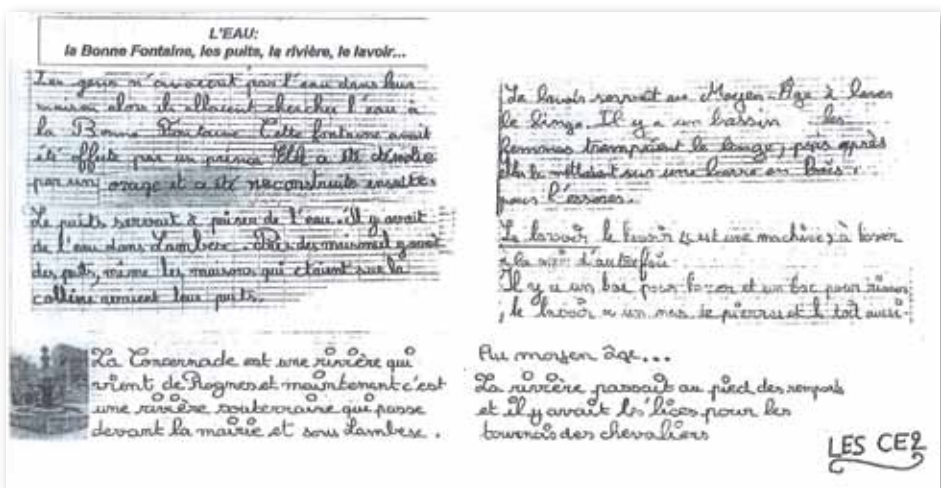 L'EAU:
la Bonne Fontaine, les puits, la rivière, le lavoir...
Les gens n'avaient pas l'eau dans leur
maison alors ils allaient chercher l'eau à
la Bonne Fontaine Cette fontaine avait
été offerte par un prince Elle a été démolie
par un orage et a été reconstruite ensuite.
Le puits servait à puiser de l'eau. Il y avait
de l'eau dans Lambesc. Près des maisons il y avait
des puits, même les maisons qui étaient sur la
colline avaient leur puits.
La Concernade est une rivière qui
vient de Rognes et maintenant c'est
une rivière souterraine qui passe
devant la mairie et sous Lambesc.
Le lavoir servait au Moyen-Âge à laver
le linge. Il y a un bassin les
femmes trempaient le linge, puis après
elle le mettaient sur une barre en bois
pour l'essorer.
Le lavoir le lavoir c'est une machine à laver
à la main d'autrefois
Il y a un bac pour laver et un bac pour rincer
, le lavoir a un mur de pierres et le toit aussi.
Au moyen âge...
La rivière passait au pied des remparts
et il y avait les lices pour les
tournois des chevaliers
LES CE2